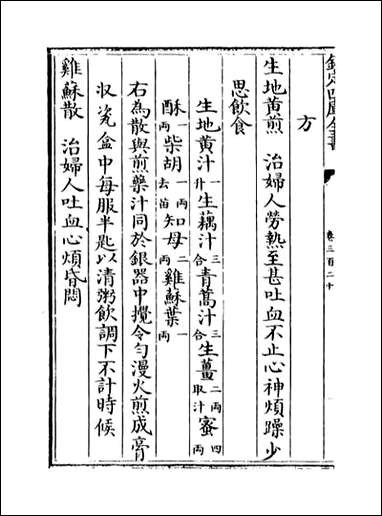 欽定四庫全書
卷三百二十
方
生地黄煎　治婦人勞熱至甚吐血不止心神煩躁少
思飲食
生地黄汁一升生藕汁三合青蒿汁三合生薑二兩取汁蜜四兩
酥一兩柴胡一兩去苗知母二兩雞蘇葉一兩
右為散與煎藥汁同於銀器中攪令匀漫火煎成膏
収瓷盒中每服半匙以清粥飲調下不計時候
雞蘇散　治婦人吐血心煩昏悶